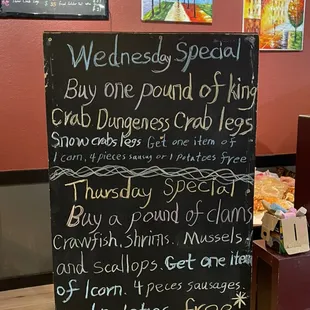 Wednesday Special
Buy one pound of king
Crab Dungeness Crab legs
Snow crabs legs Get one item of
1 corn, 4 pieces sausag or 1 Potatoes free
Thursday Special
Buy a pound of clams
Crawfish, Shrims. Mussels
and scallops. Get one item
of 1 corn. 4 peces sausages.
free